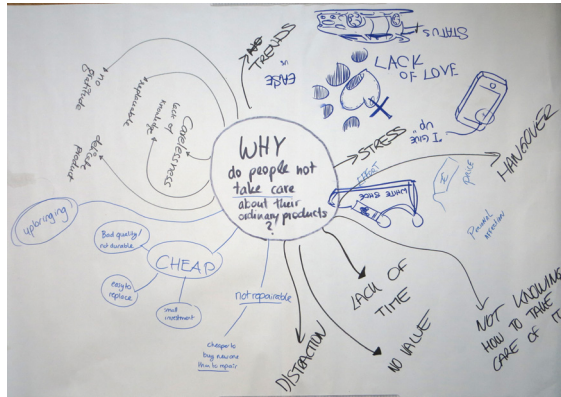 WHY
do people not
take care
about their
ordinary products
?
TRENDS
EASE
STATUS
LACK
OF LOVE
"I GIVE
UP"
STRESS
HANGOVER
EFFORT
WHITE SHOE
PRICE
NOT KNOWING
HOW TO TAKE
CARE OF IT
LACK OF
TIME
NO VALUE
DISTRACTION
not repairable
cheaper to
buy new one
than to repair
CHEAP
Bad quality/
not durable
easy to
replace
small
investment
upbringing
Carelessness
lack of
knowledge
replaceable
delicate
product
no
gratitude